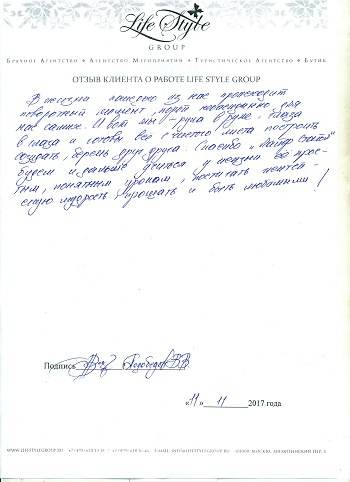 Life Style
GROUP
БРАЧНОЕ АГЕНТСТВО • АГЕНТСТВО МЕРОПРИЯТИЙ • ТУРИСТИЧЕСКОЕ АГЕНТСТВО • БУТИК
ОТЗЫВ КЛИЕНТА О РАБОТЕ LIFE STYLE GROUP
В жизни каждого из нас происходит
поворотный момент, порой неожиданно для
нас самих. И вот мы - рука в руке, глаза
в глаза и готовы все с чистого листа построить
создать, беречь друг друга. Спасибо "Лайф Стайл"
Будем и дальше учиться у жизни ее прос-
тым, понятным урокам, постигать
мудрость прощать и быть любимыми!
Подпись
«11» 11 2017 года
WWW.LIFESTYLEGROUP.RU